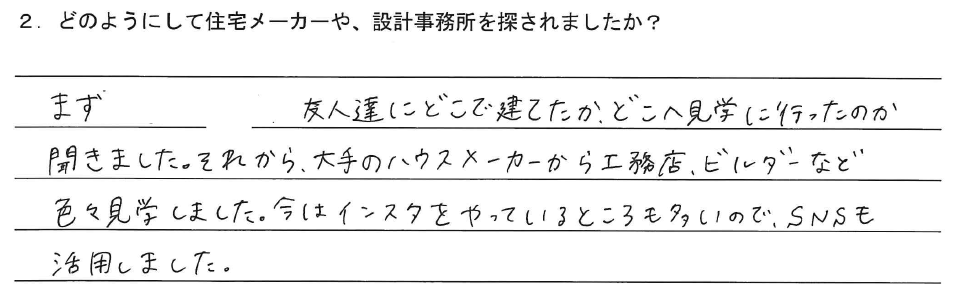 2．どのようにして住宅メーカーや、設計事務所を探されましたか？
まず　　　友人達にどこで建てたか、どこへ見学に行ったのか
聞きました。それから、大手のハウスメーカーから工務店、ビルダーなど
色々見学しました。今はインスタをやっているところも多いので、SNSも
活用しました。